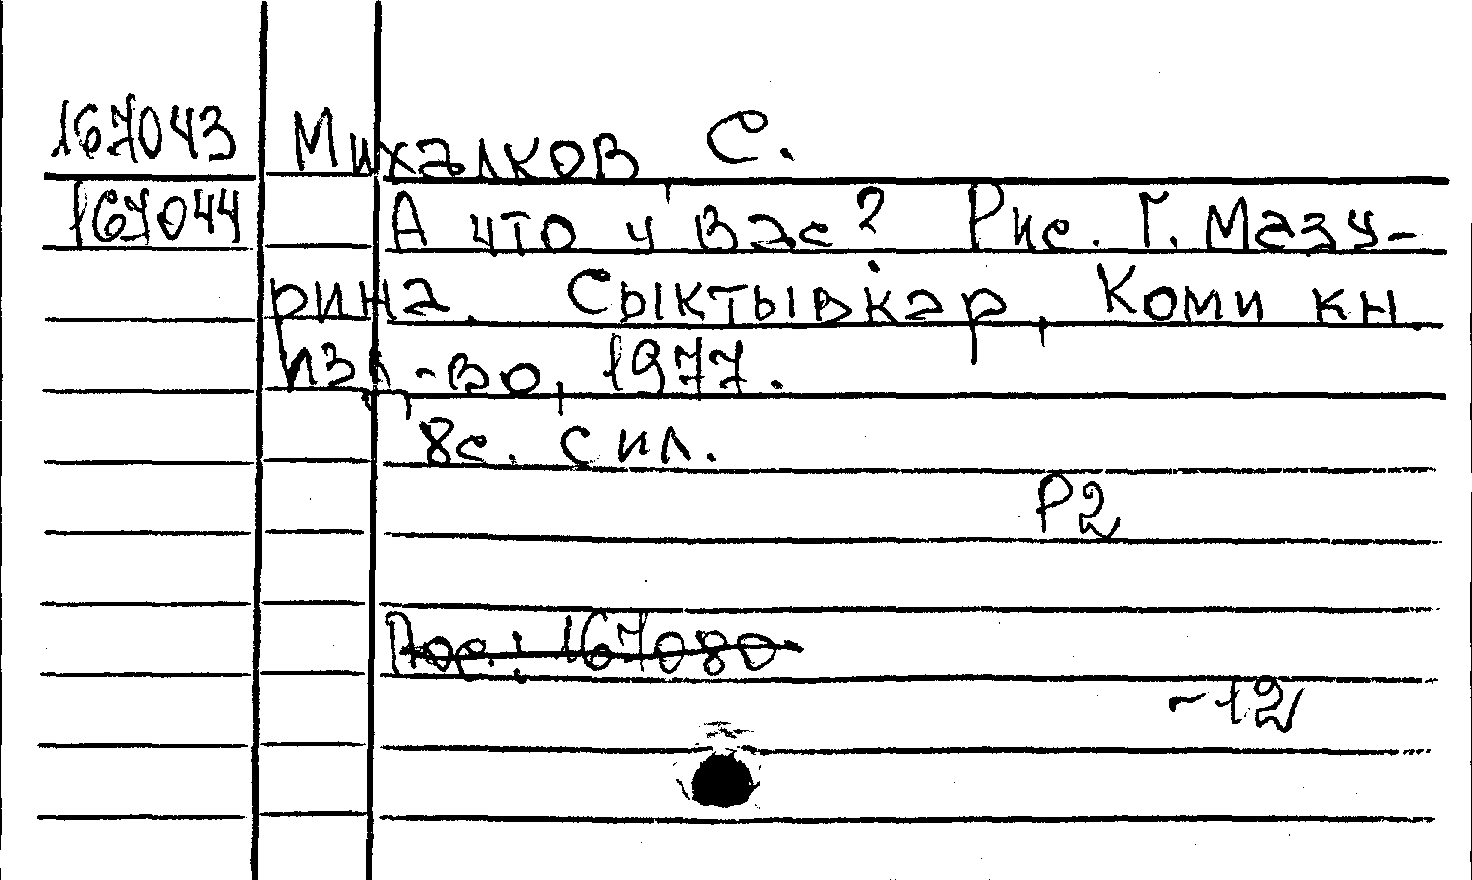 167043 Михалков С.
167044 А что у вас? Рис. Г. Мазу-
рина. Сыктывкар, Коми кн.
изд-во, 1977.
8с. с ил.
Р2
167080
-12